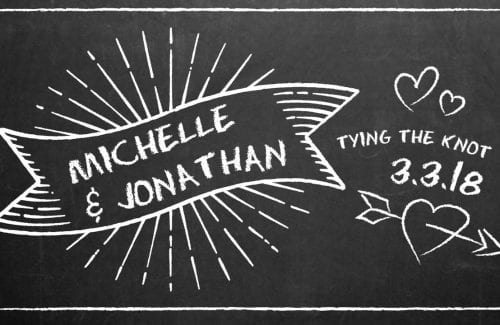 MICHELLE
& JONATHAN
TYING THE KNOT
3.3.18